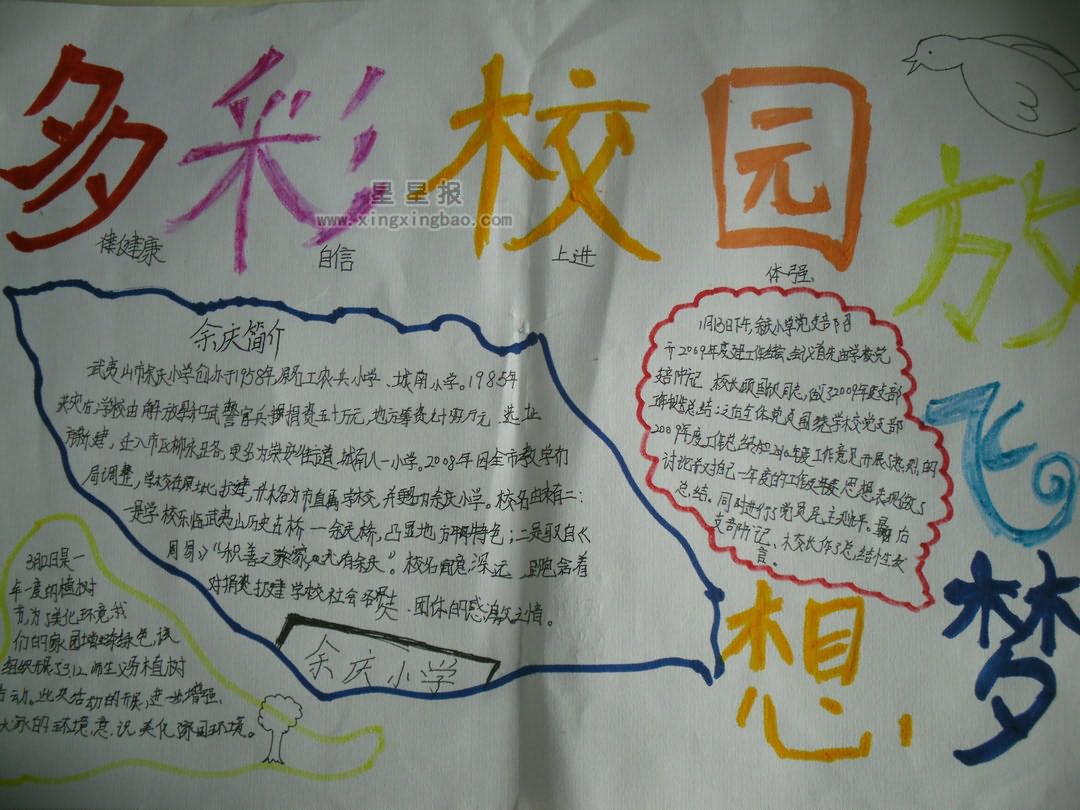 多彩校园
放飞梦想
星星报
www.xingxingbao.com
健康
自信
上进
体强。
余庆简介
武夷山市余庆小学创办于1958年,原名工农兵小学、城南小学。1985年
学校由解放军武警官兵捐资五十万元,地方筹资七十万元,选址
新建,更名为崇安街道城南小学。2008年因全市教学布
局调整,学校在原址扩建,并将名为市直属学校,并更名为余庆小学。校名由来有二:
一是学校乐临武夷山历史古桥一余庆桥,凸显地方特色;二是取自《
周易》“积善之家,必有余庆”。校名寓意深远,包含着
对捐资扩建学校社会各界、团体的感激之情。
余庆小学
1月13日下午,余庆小学党支部召
开2009年度党建工作会议,会议首先由学校党
支部书记、校长顾国钦同志,做了2009年度支部
工作总结;之后全体党员围绕学校党支部
2009年度工作总结和2010年度工作意见开展了热烈的
讨论,并把一年度的工作及思想表现做了
总结。同时进行了党员民主测评。最后
支部书记、校长作了总结性发
言。
3月12日是一
年一度的植树
节,为了美化环境,我
们的家园增添绿色,试
组织开展了3.12师生义务植树
活动。此次活动的开展,进一步增强
大家的环境意识,美化家园环境。